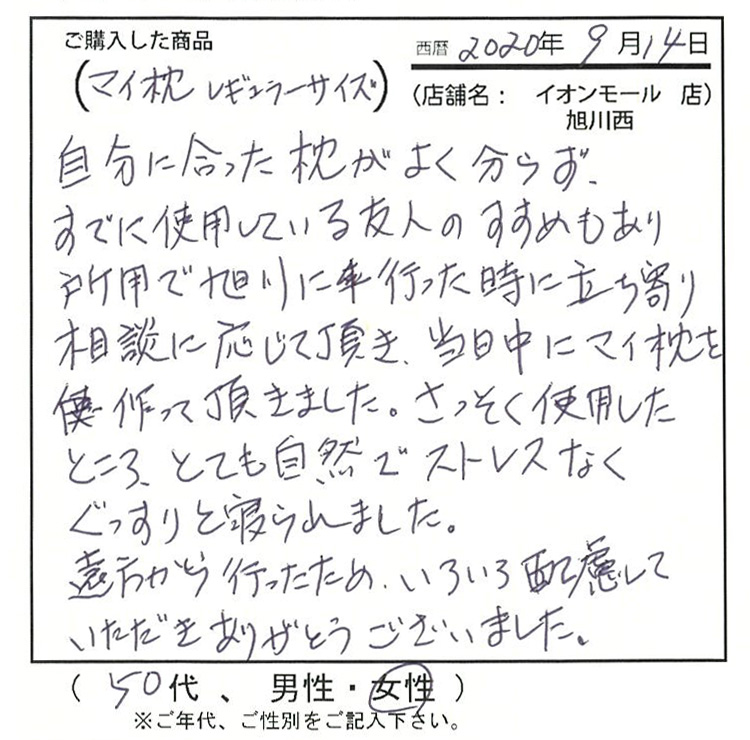 ご購入した商品
西暦 2020年 9月14日
(マイ枕 レギュラーサイズ)
(店舗名： イオンモール 店)
旭川西
自分に合った枕がよく分らず、
すでに使用している友人のすすめもあり
所用で旭川に行った時に立ち寄り
相談に応じて頂き、当日中にマイ枕を
作って頂きました。さっそく使用した
ところ、とても自然でストレスなく
ぐっすりと寝られました。
遠方から行ったため、いろいろ配慮して
いただきありがとうございました。
( 50代 、 男性・女性 )
※ご年代、ご性別をご記入下さい。